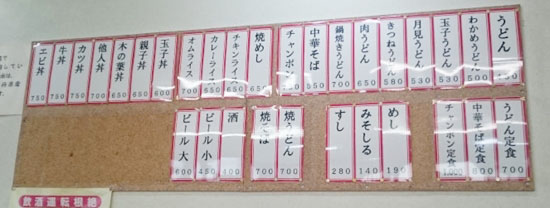 うどん
わかめうどん
玉子うどん 530
月見うどん 530
きつねうどん 580
肉うどん 650
鍋焼きうどん 700
中華そば
チャンポン
焼めし 650
チキンライス
カレーライス
オムライス 700
玉子丼 650
親子丼 650
木の葉丼 650
他人丼 700
カツ丼 750
牛丼 750
エビ丼 750
うどん定食 700
中華そば定食 800
チャンポン定食
めし 190
みそしる 140
すし 280
焼うどん 700
焼そば 700
酒
ビール 小 450
ビール 大 600
飲酒運転根絶